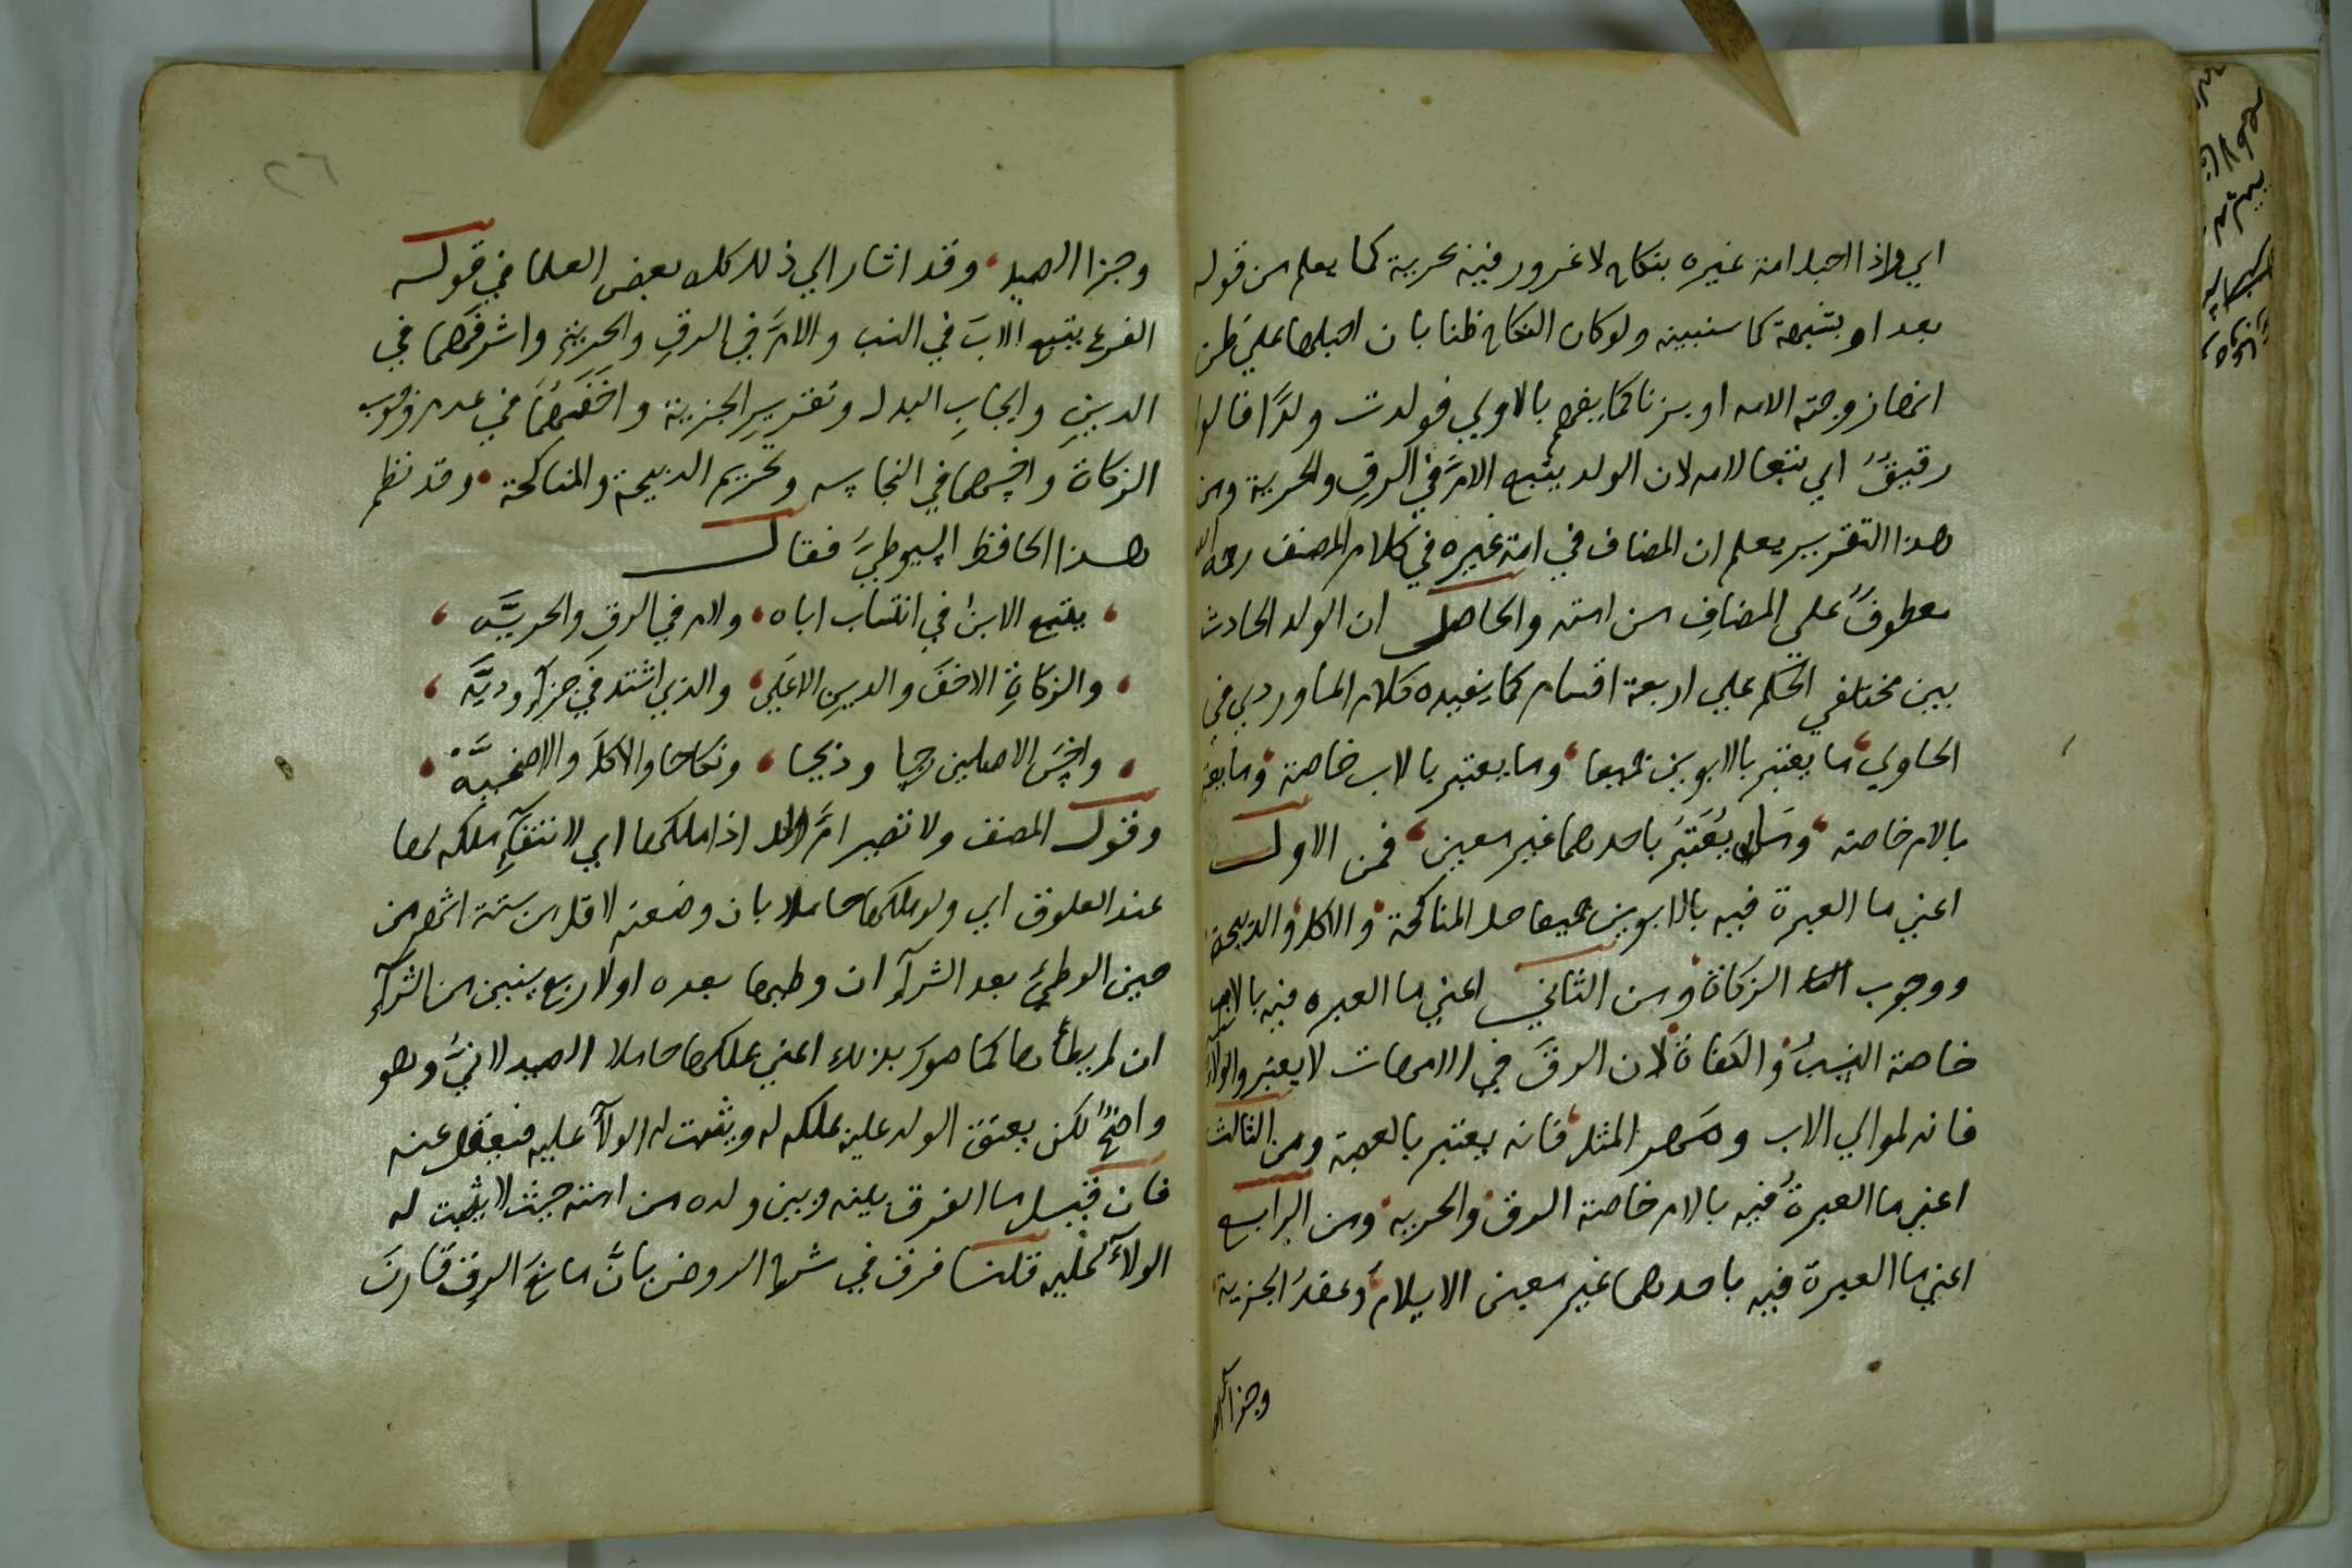 اي واذا احبل امة غيره بنكاح لا غرور فيه بحرية كما يعلم من قوله
بعد او بشبهة كما سنبينه ولو كان النكاح ظنا بان احبلها علي ظن
انها زوجته الامه او بزنا كما يفهم بالاولي فولدت ولدًا فالولد
رقيقٌ اي تبعا لامه لان الولد يتبع الامَّ في الرقِ والحرية ومن
هذا التقرير يعلم ان المضاف في امة غيره في كلام المصنف رحمه الله
معطوفٌ علي المضافِ من امته والحاصل ان الولد الحادث
بين مختلفي الحكم علي اربعة اقسام كما يفيده كلام الماوردي في
الحاوي ما يعتبر بالابوين جميعا وما يعتبر بالاب خاصة وما يعتبر
بالام خاصة وما يُعْتَبَرُ باحدهما غير معين فمن الاول
اعني ما العبرة فيه بالابوين جميعا حل المناكحة والاكل والذبيحة
ووجوب الزكاة ومن الثاني اعني ما العبره فيه بالاب
خاصة النسبُ والكفاة لان الرقَّ في الامهات لا يعتبر والولاء
فانه لموالي الاب ومَهر المثل فانه يعتبر بالعصبة ومن الثالث
اعني ما العبرةُ فيه بالام خاصة الرق والحريه ومن الرابع
اعني ما العبرة فيه باحدهما غير معين الاسلام وعقدُ الجزية
وجزا الصيد
٢٦
وجزا الصيد وقد اشار الي ذلك كله بعض العلما في قوله
الفرع يتبع الابَ في النسب والامَّ في الرقِ والحريةِ واشرفَهما في
الدينِ وايجابِ البدل وتقريرِ الجزية واخَفَهُمَا في عدم وجوب
الزكاة واخسهما في النجاسه وتحريم الذبيحة والمناكحة وقد نظم
هذا الحافظ السيوطيُ فقال
يتبع الابنُ في انتساب اباه ولام في الرقِ والحريَّه
والزكاةِ الاخفَ والدينِ الاعلَي والذي اشتد في جزاءٍ وديَّه
واخسَ الاصلين رجسا وذبحا ونكاحا والاكلَ والاضحيَّة
وقول المصنف ولا تصير امَّ ولد اذا ملكها اي لانتفاءِ ملكه لها
عند العلوق اي ولو ملكها حاملا بان وضعته لاقل من ستة اشهر من
حين الوطيءِ بعد الشرآءِ ان وطيها بعده او لاربع سنين من الشرآءِ
ان لم يطأها كما صور بذلك اعني بملكها حاملا الصيدلانيُ وهو
واضحٌ لكن يعتق الولد عليه بملكه له ويثبت له الولآءُ عليه فيعقل عنه
فان قيل ما الفرق بينه وبين ولده من امته حيث لا يثبت له
الولآءُ عليه قلنا فرق في شرح الروض بانَّ مانعَ الرق قارنَ